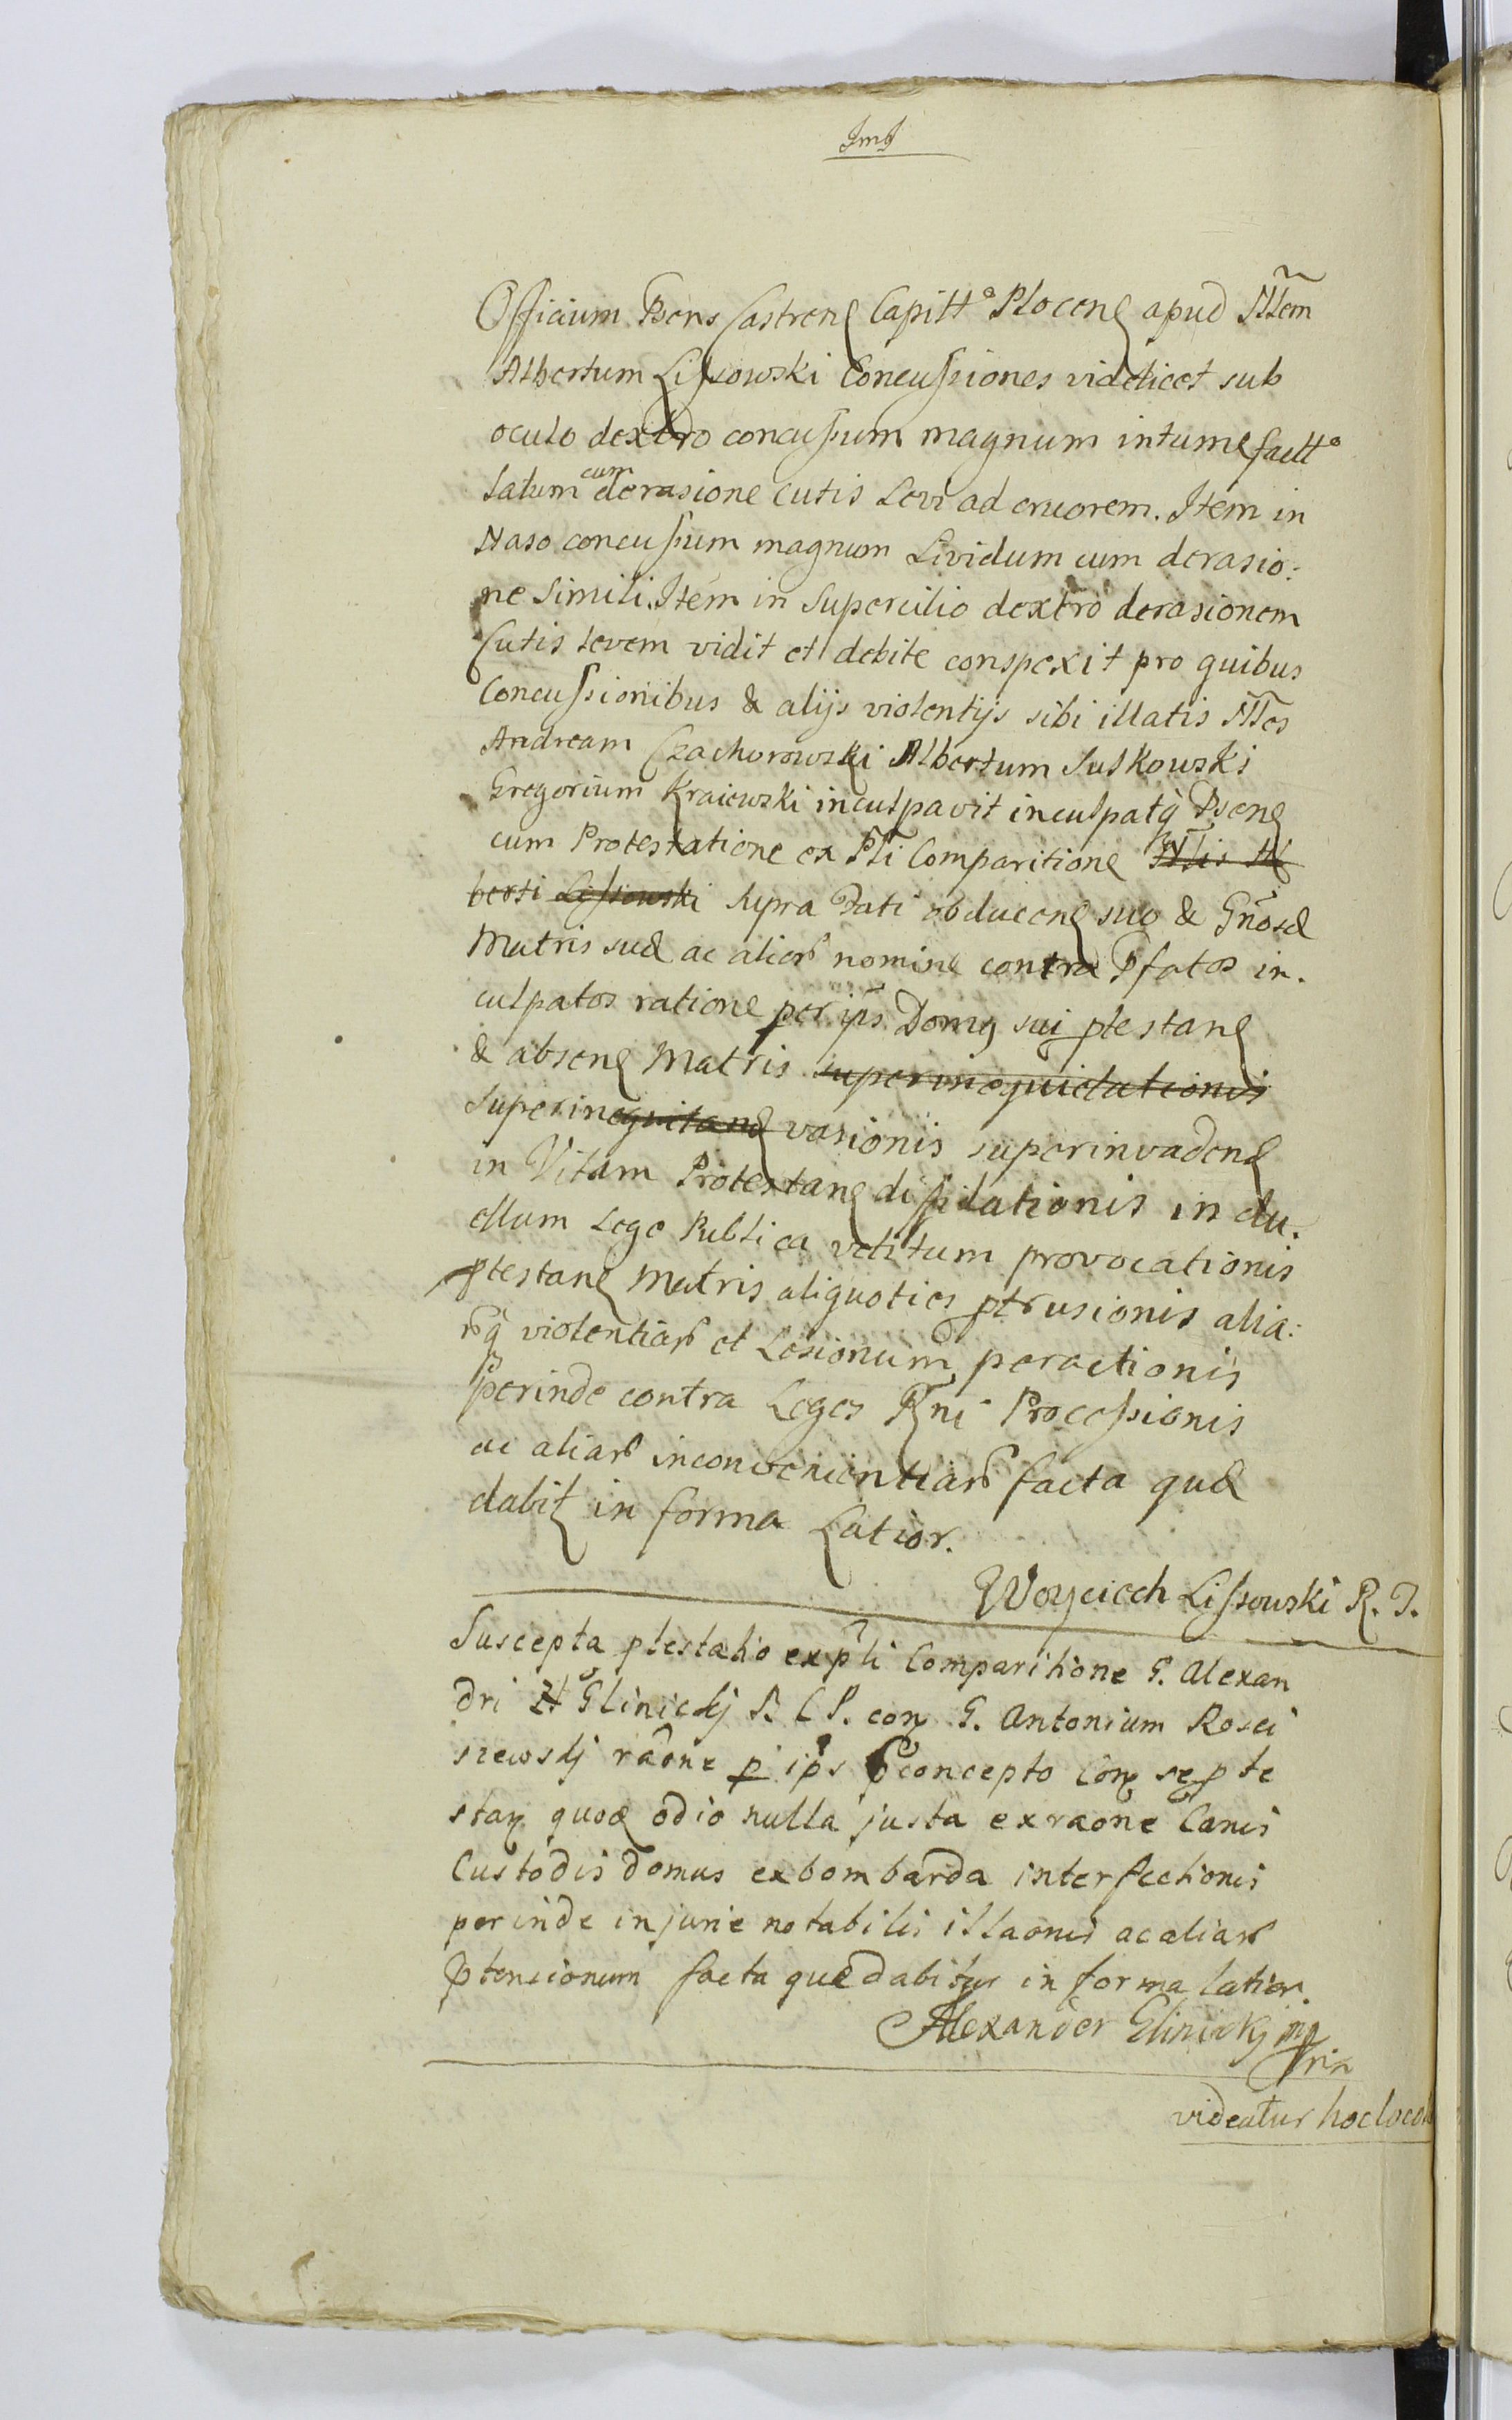 JmJ
Officium Psens Castren Capitt° Plocen apud Nlem
Albertum Lissowski Concussiones videlicet sub
oculo dextro concussum magnum intumefactt°
Satum cum derasione cutis Levi ad cruorem. Item in
Naso concussum magnum Lividum cum derasio:
ne Simili. Item in Supercilio dextro derasionem
Cutis levem vidit et debite conspexit pro quibus
Concussionibus & alijs violentijs sibi illatis Nles
Andream Czachorowski Albertum Sutkowski
Gregorium Kraiewski inculpavit inculpatq Psen
cum Protestatione ex Pti Comparitione Nlis Al
berti Lissowski Supra Dati obducen suo & Gnosæ
Matris suæ ac alior nomine contra Pfatos in.
culpatos ratione per ips Domq sui ptestan
& absen Matris superinequietationis
Superinequitan vasionis superinvaden
in Vitam Protestan diffidationis in du.
ellum Lege Publica vetitum provocationis
ptestan Matris aliquoties ptrusionis alia:
rq violentiar et Lesionum peractionis
perinde contra Leges Rni Processionis
ac aliar inconvenientiar facta quæ
dabit in forma Latior.
Woyciech Lissowski R. T.
Suscepta ptestatio ex pti Comparitione G. Alexan
dri Glinickj B. C P. con G. Antonium Rosci
szewskj raone p ips concepto Con se pte
stan quoq odio nulla justa ex raone Canis
Custodis domus ex bombarda interfectionis
perinde injurie notabilis illaonis ac aliar
Ptensionum facta quæ dabitur in forma latior.
Alexander Glinickj mp
videatur hoc loco